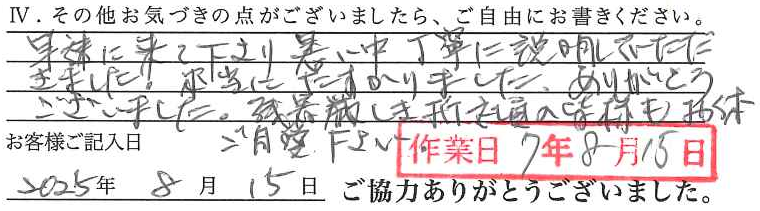 Ⅳ．その他お気づきの点がございましたら、ご自由にお書きください。
早速に来て下さり暑い中丁寧に説明していただ
きました。本当にたすかりました、ありがとう
ございました。残暑厳しき折社員の皆様もお体
お客様ご記入日 ご自愛下さい。
作業日 7年8月15日
2025年 8月 15日 ご協力ありがとうございました。